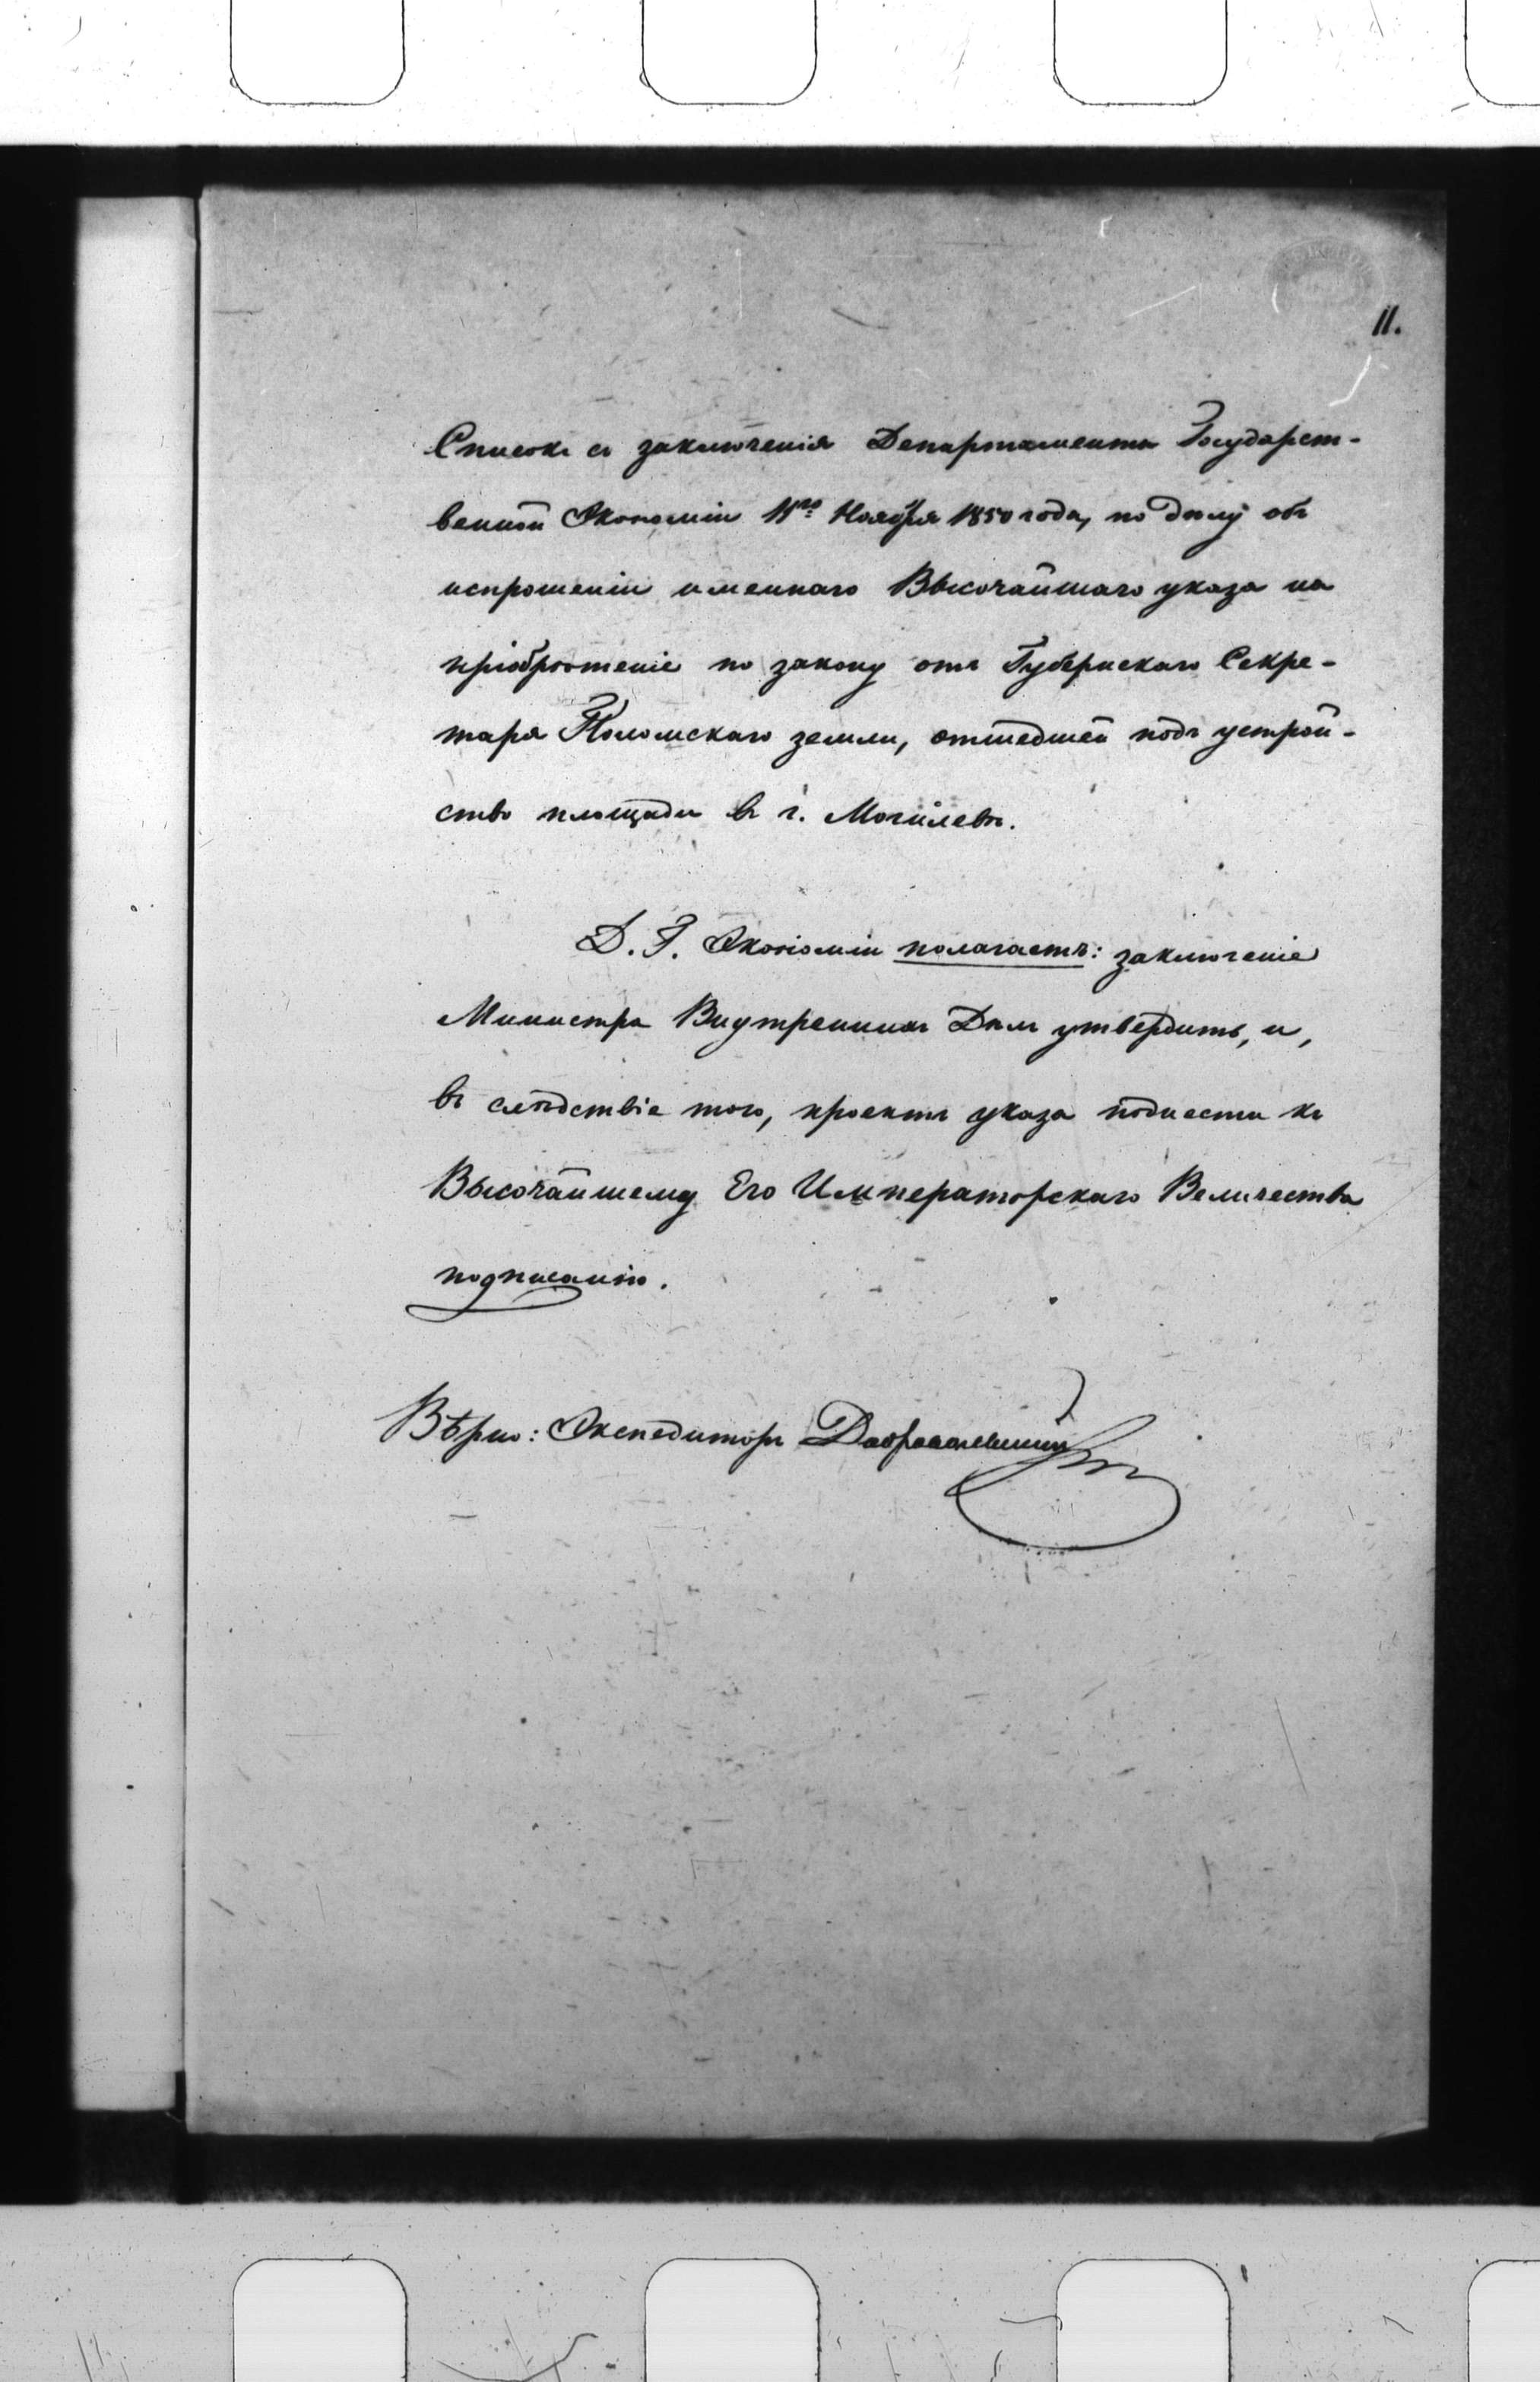 11.
Списокъ съ заключенія Департамента Государст-
венной Экономіи 11го Ноября 1850 года, по дѣлу объ
испрошеніи имяннаго Высочайшаго указа на
пріобрѣтеніе по закону отъ Губернскаго Секре-
таря земли, отшедшей подъ устрой-
ство площади въ г. Могилевѣ.
Д. Г. Экономіи полагаетъ: заключеніе
Министра Внутреннихъ Дѣлъ утвердить, и,
въ слѣдствіе того, проектъ указа поднести къ
Высочайшему Его Императорскаго Величества
подписанію.
Вѣрно: Экспедиторъ